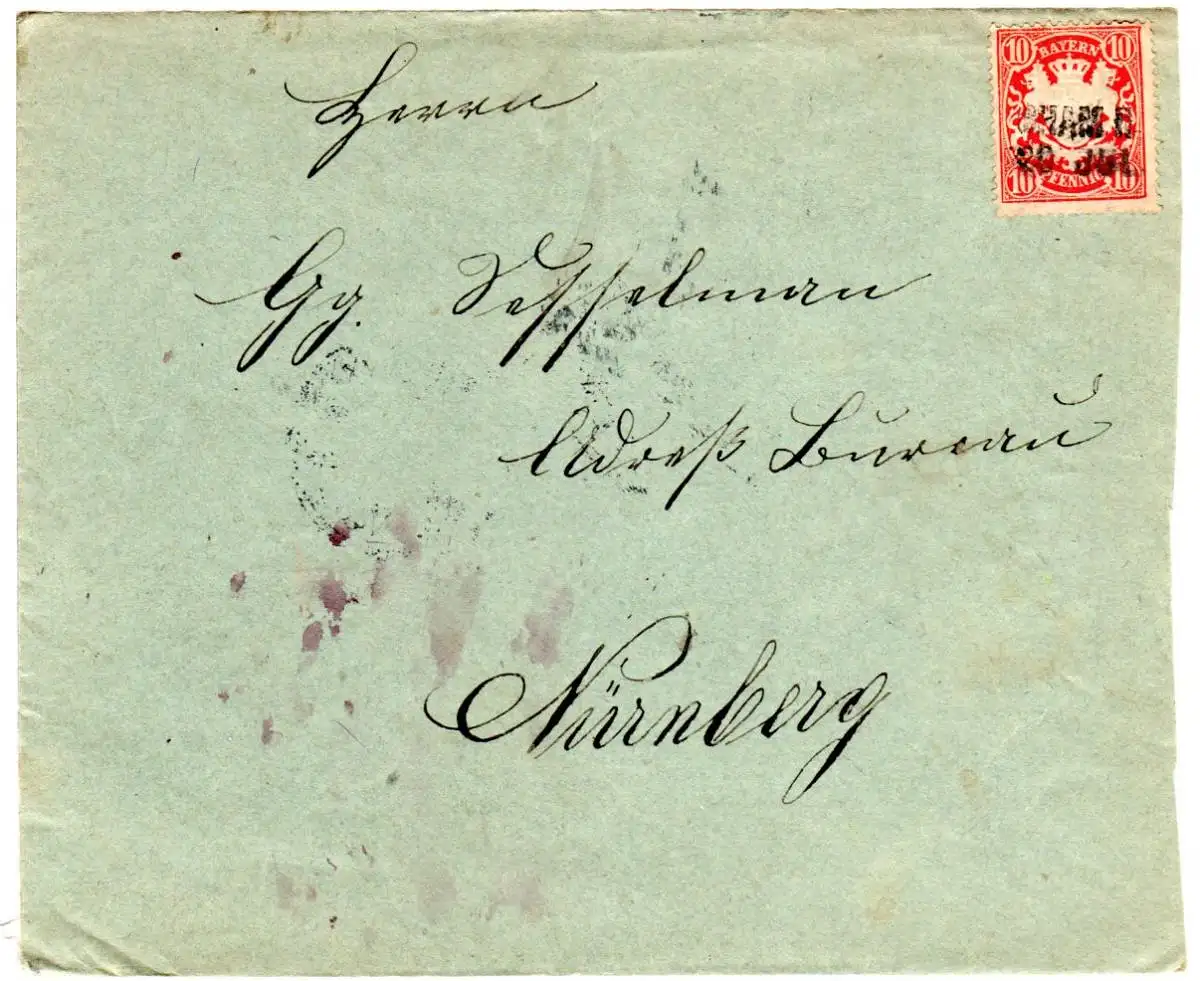 10 BAYERN 10
20 JUL
10 PFENNIG 10
Herrn
Gg. Sesselman
Adreß Bureau
Nürnberg